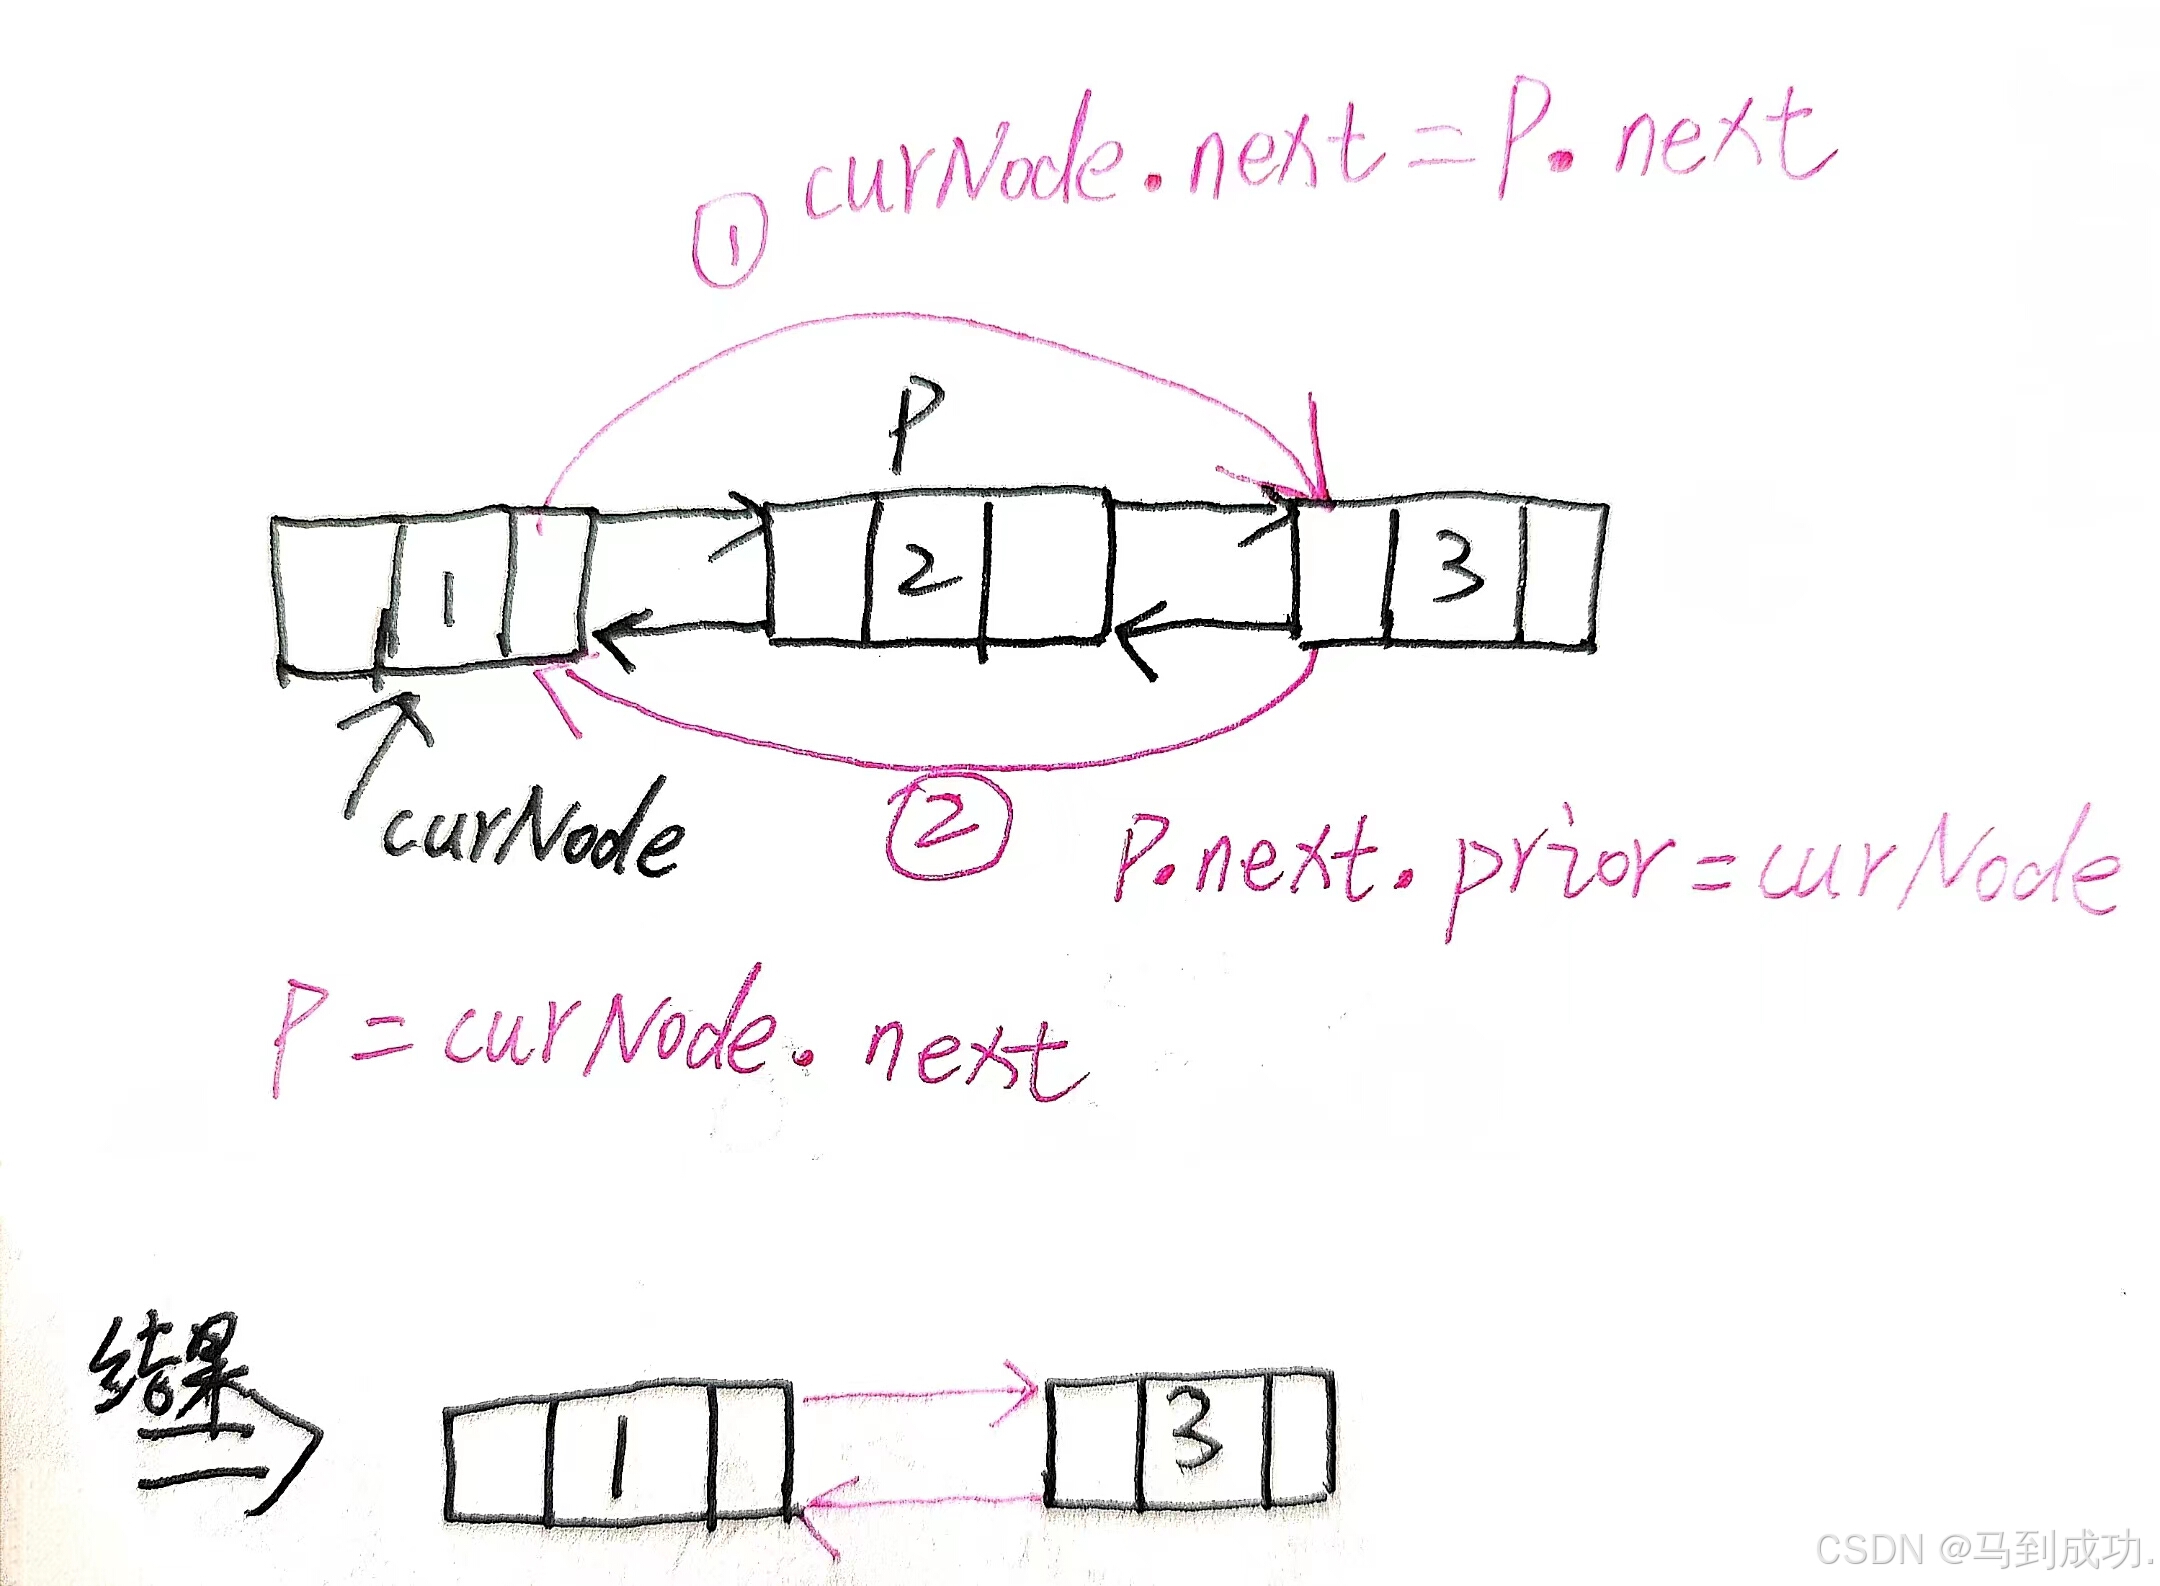 ① curNode.next=P.next
P
1 2 3
curNode
② P.next.prior=curNode
P=curNode.next
结果
1 3
CSDN @马到成功.